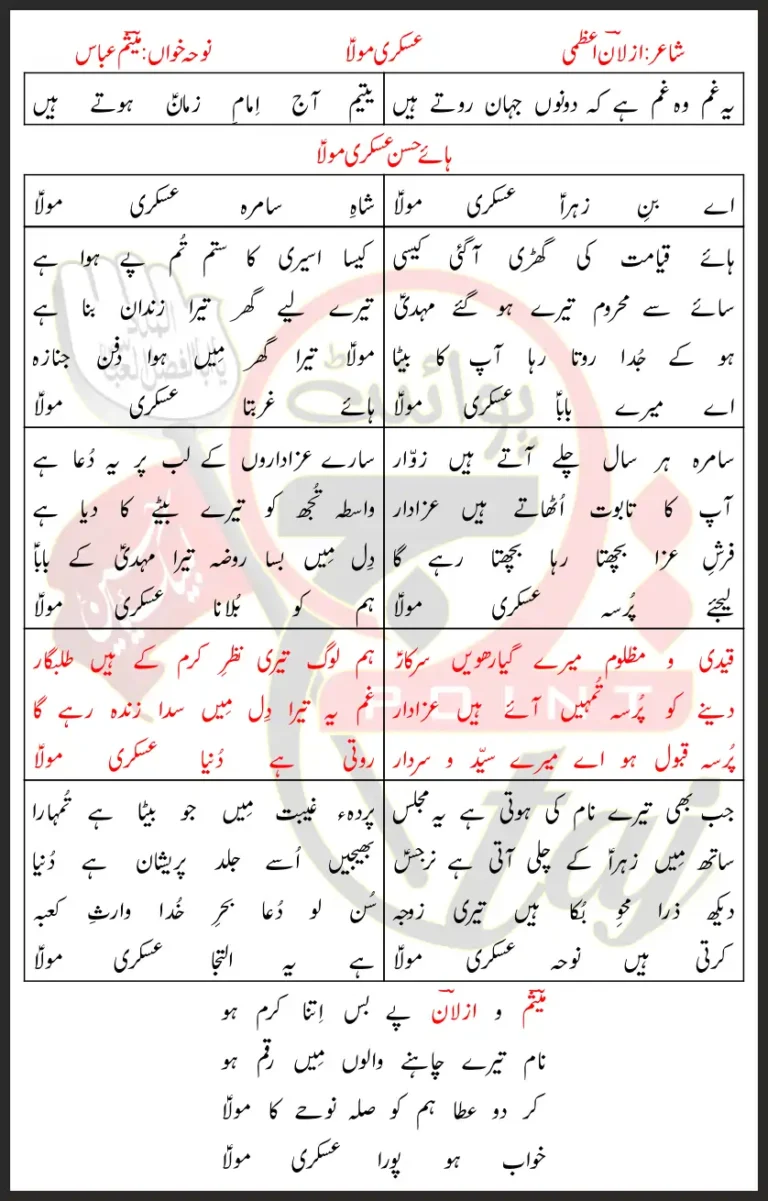 شاعر: ازلان اعظمی عسکری مولاؑ نوحہ خواں: میثم عباس
یہ غم وہ غم ہے کہ دونوں جہان روتے ہیں یتیم آج اِمامِ زمانؑ ہوتے ہیں
ہائے حسن عسکری مولاؑ
اے بنِ زہراؑ عسکری مولاؑ شاہِ سامرہ عسکری مولاؑ
ہائے قیامت کی گھڑی آ گئی کیسی کیسا اسیری کا ستم تُم پے ہوا ہے
سائے سے محروم تیرے ہو گئے مہدیؑ تیرے لیے گھر تیرا زندان بنا ہے
ہو کے جُدا روتا رہا آپ کا بیٹا مولاؑ تیرا گھر مِیں ہوا دفن جنازہ
اے میرے باباؑ عسکری مولاؑ ہائے غربتا عسکری مولاؑ
سامرہ ہر سال چلے آتے ہیں زوّار سارے عزاداروں کے لب پر یہ دُعا ہے
آپ کا تابوت اُٹھاتے ہیں عزادار واسطہ تُجھ کو تیرے بیٹے کا دیا ہے
فرشِ عزا بچھتا رہا بچھتا رہے گا دِل مِیں بسا روضہ تیرا مہدیؑ کے باباؑ
لیجئے پُرسہ عسکری مولاؑ ہم کو بُلانا عسکری مولاؑ
قیدی و مظلوم میرے گیارھویں سرکارؑ ہم لوگ تیری نظرِ کرم کے ہیں طلبگار
دینے کو پُرسہ تُمہیں آئے ہیں عزادار غم یہ تیرا دِل مِیں سدا زندہ رہے گا
پُرسہ قبول ہو اے میرے سیّد و سردار روتی ہے دُنیا عسکری مولاؑ
جب بھی تیرے نام کی ہوتی ہے یہ مجلس پردہء غیبت مِیں جو بیٹا ہے تُمہارا
ساتھ مِیں زہراؑ کے چلی آتی ہے نرجسؑ بھیجیں اُسے جلد پریشان ہے دُنیا
دیکھ ذرا محوِ بُکا ہیں تیری زوجہ سُن لو دُعا بحرِ خُدا وارثِ کعبہ
کرتی ہیں نوحہ عسکری مولاؑ ہے یہ التجا عسکری مولاؑ
میثم و ازلان پے بس اِتنا کرم ہو
نام تیرے چاہنے والوں مِیں رقم ہو
کر دو عطا ہم کو صلہ نوحے کا مولاؑ
خواب ہو پورا عسکری مولاؑ
پوائنٹ
POINT
taj